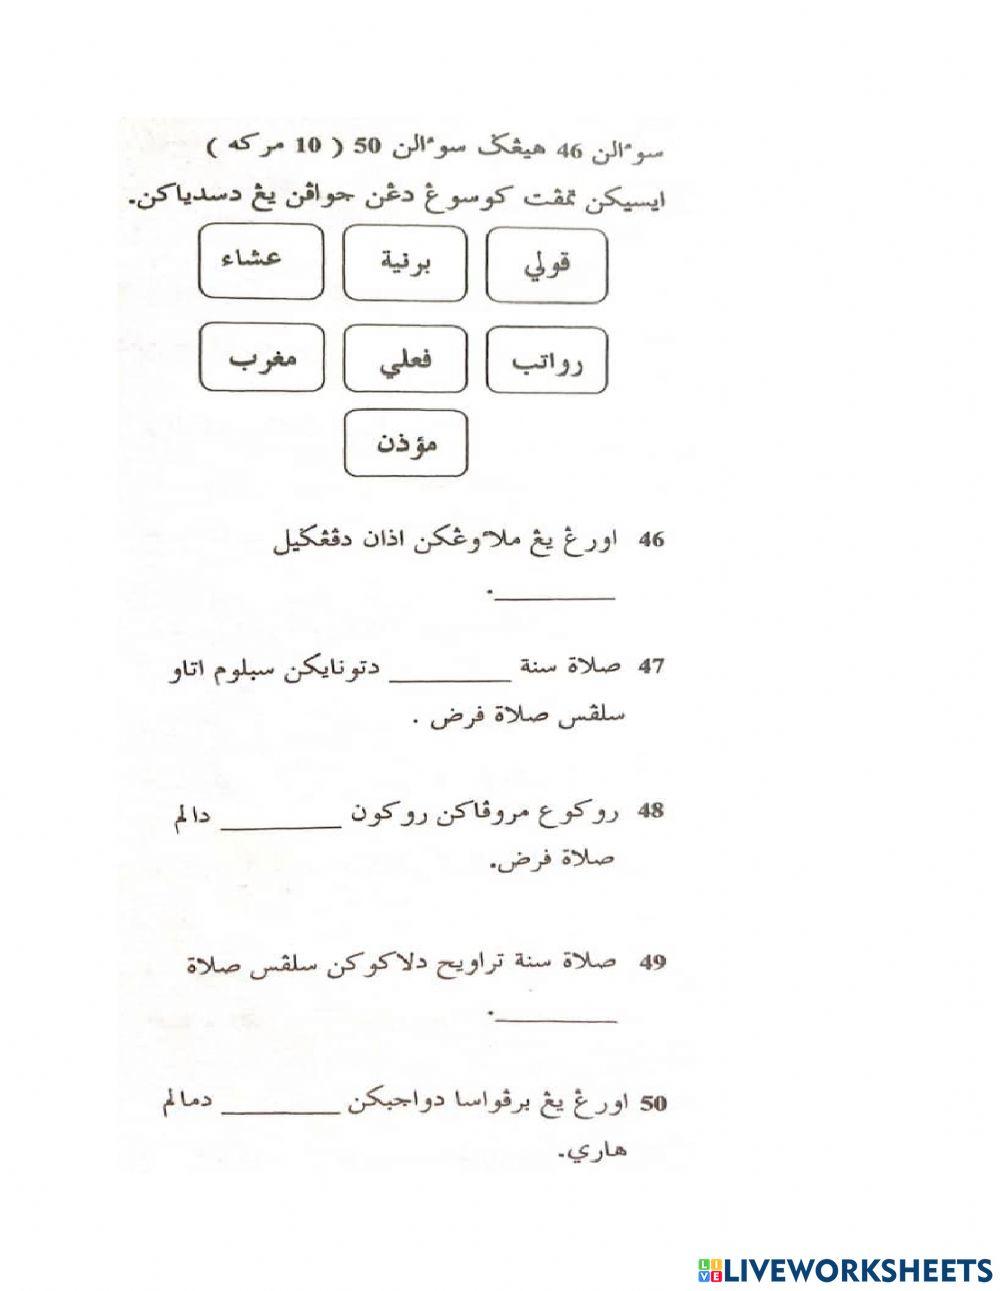 سوءالن 46 هيڠݢ سوءالن 50 ( 10 مركه )
ايسيكن تمڤت كوسوڠ دڠن جواڤن يڠ دسدياكن.
قولي
برنية
عشاء
رواتب
فعلي
مغرب
مؤذن
46 اورڠ يڠ ملاءوڠكن اذان دڤڠݢيل
__________.
47 صلاة سنة __________ دتونايكن سبلوم اتاو
سلڤس صلاة فرض .
48 روكوع مروڤاكن روكون __________ دالم
صلاة فرض.
49 صلاة سنة تراويح دلاكوكن سلڤس صلاة
__________.
50 اورڠ يڠ برڤواسا دواجبكن __________ دمالم
هاري.
LIVE LIVEWORKSHEETS